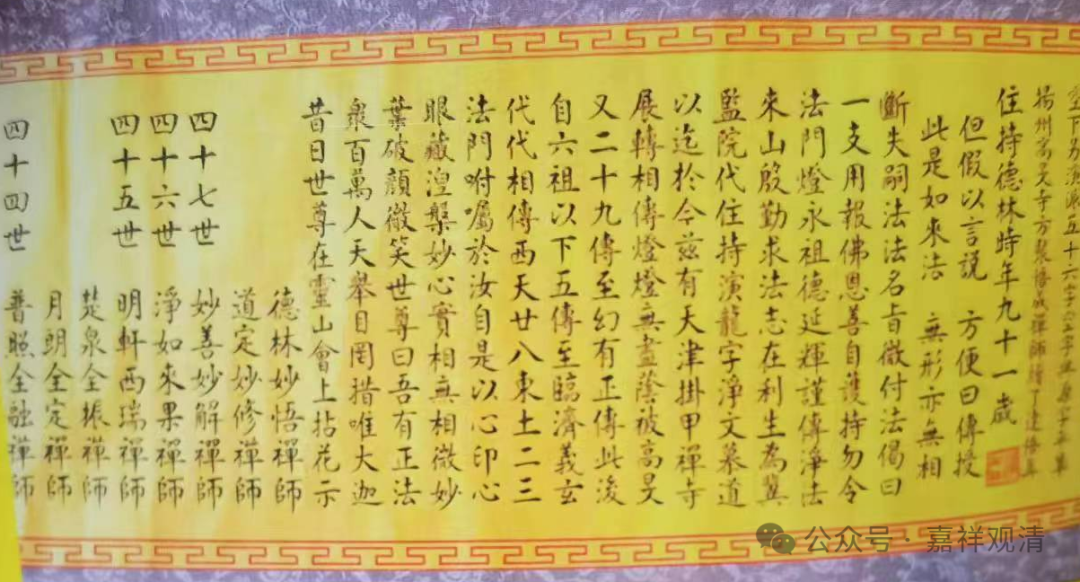 四十四世 普照全融禪師
月朗全定禪師
楚泉全振禪師
四十五世 明軒西瑞禪師
四十六世 淨如來果禪師
四十七世 妙善妙解禪師
道定妙修禪師
德林妙悟禪師
昔日世尊在靈山會上拈花示
眾百萬人天舉目罔措唯大迦
葉破顏微笑世尊曰吾有正法
眼藏湼槃妙心實相無相微妙
法門咐囑於汝自是以心印心
代代相傳西天廿八東土二三
自六祖以下五傳至臨濟義玄
又二十九傳至幻有正傳此後
展轉相傳燈燈無盡蔭被高旻
以迄於今茲有天津掛甲禪寺
監院代住持演龍字淨文慕道
來山殷勤求法志在利生為冀
法門燈永祖德延輝謹傳淨法
一支用報佛恩善自護持勿令
斷失嗣法法名旨徹付法偈曰
此是如來法 無形亦無相
但假以言說 方便曰傳授
住持德林時年九十一歲
揚州高旻寺方丈
公众号·嘉祥观清